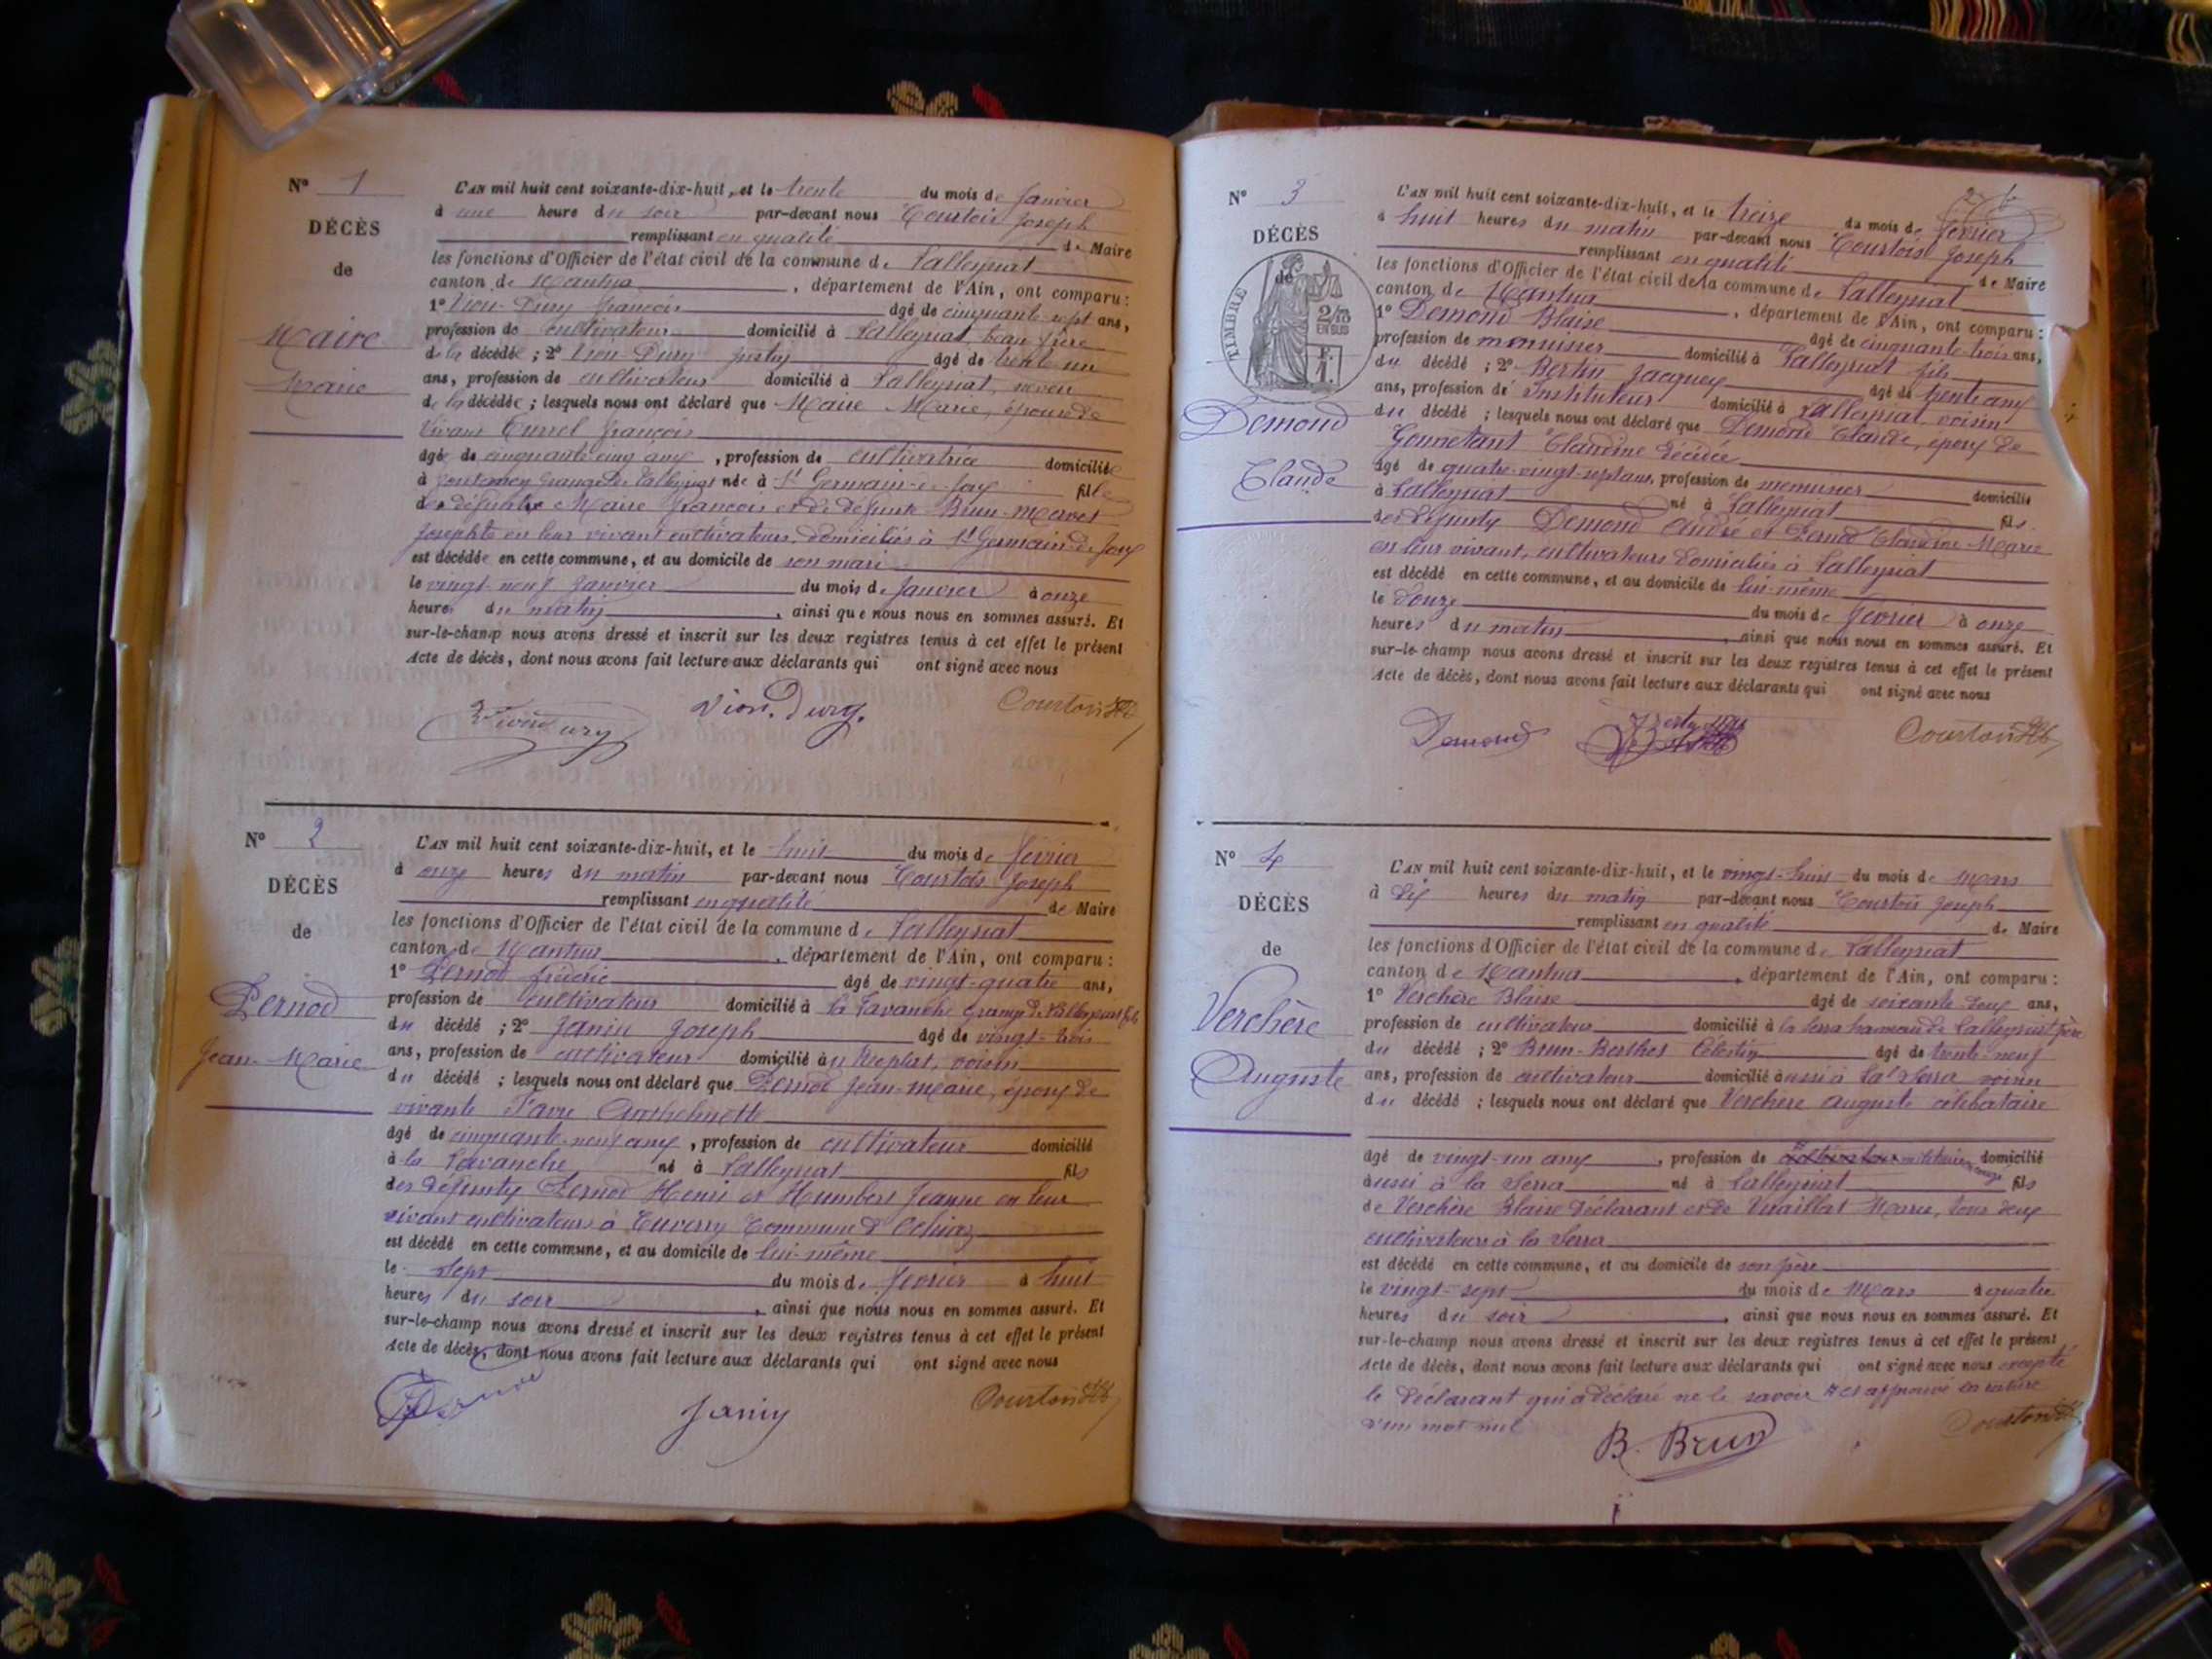 N° 1
DÉCÈS
de
Maire
Marie
L'AN mil huit cent soixante-dix-huit, et le trente du mois de Janvier
à une heure du soir par-devant nous Courtois Joseph
remplissant en qualité de Maire
les fonctions d'Officier de l'état civil de la commune de Lalleyriat
canton de Nantua, département de l'Ain, ont comparu :
1° Vion-Dury François âgé de cinquante-sept ans,
profession de cultivateur domicilié à Lalleyriat, beau-frère
de la décédée ; 2° Vion-Dury âgé de trente-un
ans, profession de cultivateur domicilié à Lalleyriat, neveu
de la décédée ; lesquels nous ont déclaré que Maire Marie, épouse de
vivant François
âgé de cinquante cinq ans, profession de cultivatrice domicilié
à Lalleyriat née à St Germain-de-Joux fille
de défunt Maire François et de défunte Brun-
Josephte en leur vivant cultivateurs, domiciliés à St Germain-de-Joux
est décédée en cette commune, et au domicile de son mari
le vingt-neuf Janvier du mois de Janvier à onze
heures du matin, ainsi que nous nous en sommes assuré. Et
sur-le-champ nous avons dressé et inscrit sur les deux registres tenus à cet effet le présent
Acte de décès, dont nous avons fait lecture aux déclarants qui ont signé avec nous
Vion Dury Vion-Dury. Courtois
N° 2
DÉCÈS
de
Pernod
Jean-Marie
L'AN mil huit cent soixante-dix-huit, et le huit du mois de février
à onze heures du matin par-devant nous Courtois Joseph
remplissant en qualité de Maire
les fonctions d'Officier de l'état civil de la commune de Lalleyriat
canton de Nantua, département de l'Ain, ont comparu :
1° Pernod frédéric âgé de vingt-quatre ans,
profession de cultivateur domicilié à la Lavanche Lalleyriat fils
du décédé ; 2° Janin Joseph âgé de vingt-trois
ans, profession de cultivateur domicilié au Replat, voisin
du décédé ; lesquels nous ont déclaré que Pernod Jean-Marie, époux de
vivante Favre
âgé de cinquante-neuf ans, profession de cultivateur domicilié
à la Lavanche né à Lalleyriat fils
des défunts Pernod Henri et Humbert Jeanne en leur
vivant cultivateurs à Commune d'Ochiaz
est décédé en cette commune, et au domicile de lui-même
le sept du mois de février à huit
heures du soir, ainsi que nous nous en sommes assuré. Et
sur-le-champ nous avons dressé et inscrit sur les deux registres tenus à cet effet le présent
Acte de décès, dont nous avons fait lecture aux déclarants qui ont signé avec nous
Pernod Janin Courtois
2
N° 3
DÉCÈS
de
TIMBRE
2/10
EN SUS
Demond
Claude
L'AN mil huit cent soixante-dix-huit, et le treize du mois de février
à huit heures du matin par-devant nous Courtois Joseph
remplissant en qualité de Maire
les fonctions d'Officier de l'état civil de la commune de Lalleyriat
canton de Nantua, département de l'Ain, ont comparu :
1° Demond Blaise âgé de cinquante-trois ans,
profession de menuisier domicilié à Lalleyriat fils
du décédé ; 2° Bertin Jacques âgé de trente ans
ans, profession de Instituteur domicilié à Lalleyriat, voisin
du décédé ; lesquels nous ont déclaré que Demond Claude, époux de
Gonnetant Claudine décédée
âgé de quatre-vingt-sept ans, profession de menuisier domicilié
à Lalleyriat né à Lalleyriat fils
des défunts Demond André et Pernod Claudine Marie
en leur vivant, cultivateurs domiciliés à Lalleyriat
est décédé en cette commune, et au domicile de lui-même
le douze du mois de février à onze
heures du matin, ainsi que nous nous en sommes assuré. Et
sur-le-champ nous avons dressé et inscrit sur les deux registres tenus à cet effet le présent
Acte de décès, dont nous avons fait lecture aux déclarants qui ont signé avec nous
Demond Courtois
N° 4
DÉCÈS
de
Verchère
Auguste
L'AN mil huit cent soixante-dix-huit, et le vingt-huit du mois de Mars
à dix heures du matin par-devant nous Courtois Joseph
remplissant en qualité de Maire
les fonctions d'Officier de l'état civil de la commune de Lalleyriat
canton de Nantua, département de l'Ain, ont comparu :
1° Verchère Blaise âgé de soixante deux ans,
profession de cultivateur domicilié à la Serra hameau de Lalleyriat père
du décédé ; 2° Brun-Berthet Célestin âgé de trente-neuf
ans, profession de cultivateur domicilié aussi à la Serra voisin
du décédé ; lesquels nous ont déclaré que Verchère Auguste célibataire
âgé de vingt-un ans, profession de domicilié
aussi à la Serra né à Lalleyriat fils
de Verchère Blaise déclarant et de Vuaillat Marie, tous deux
cultivateurs à la Serra
est décédé en cette commune, et au domicile de son père
le vingt-sept du mois de Mars à quatre
heures du soir, ainsi que nous nous en sommes assuré. Et
sur-le-champ nous avons dressé et inscrit sur les deux registres tenus à cet effet le présent
Acte de décès, dont nous avons fait lecture aux déclarants qui ont signé avec nous excepté
le déclarant qui a déclaré ne le savoir et approuvé la rature
d'un mot nul
B. Brun Courtois